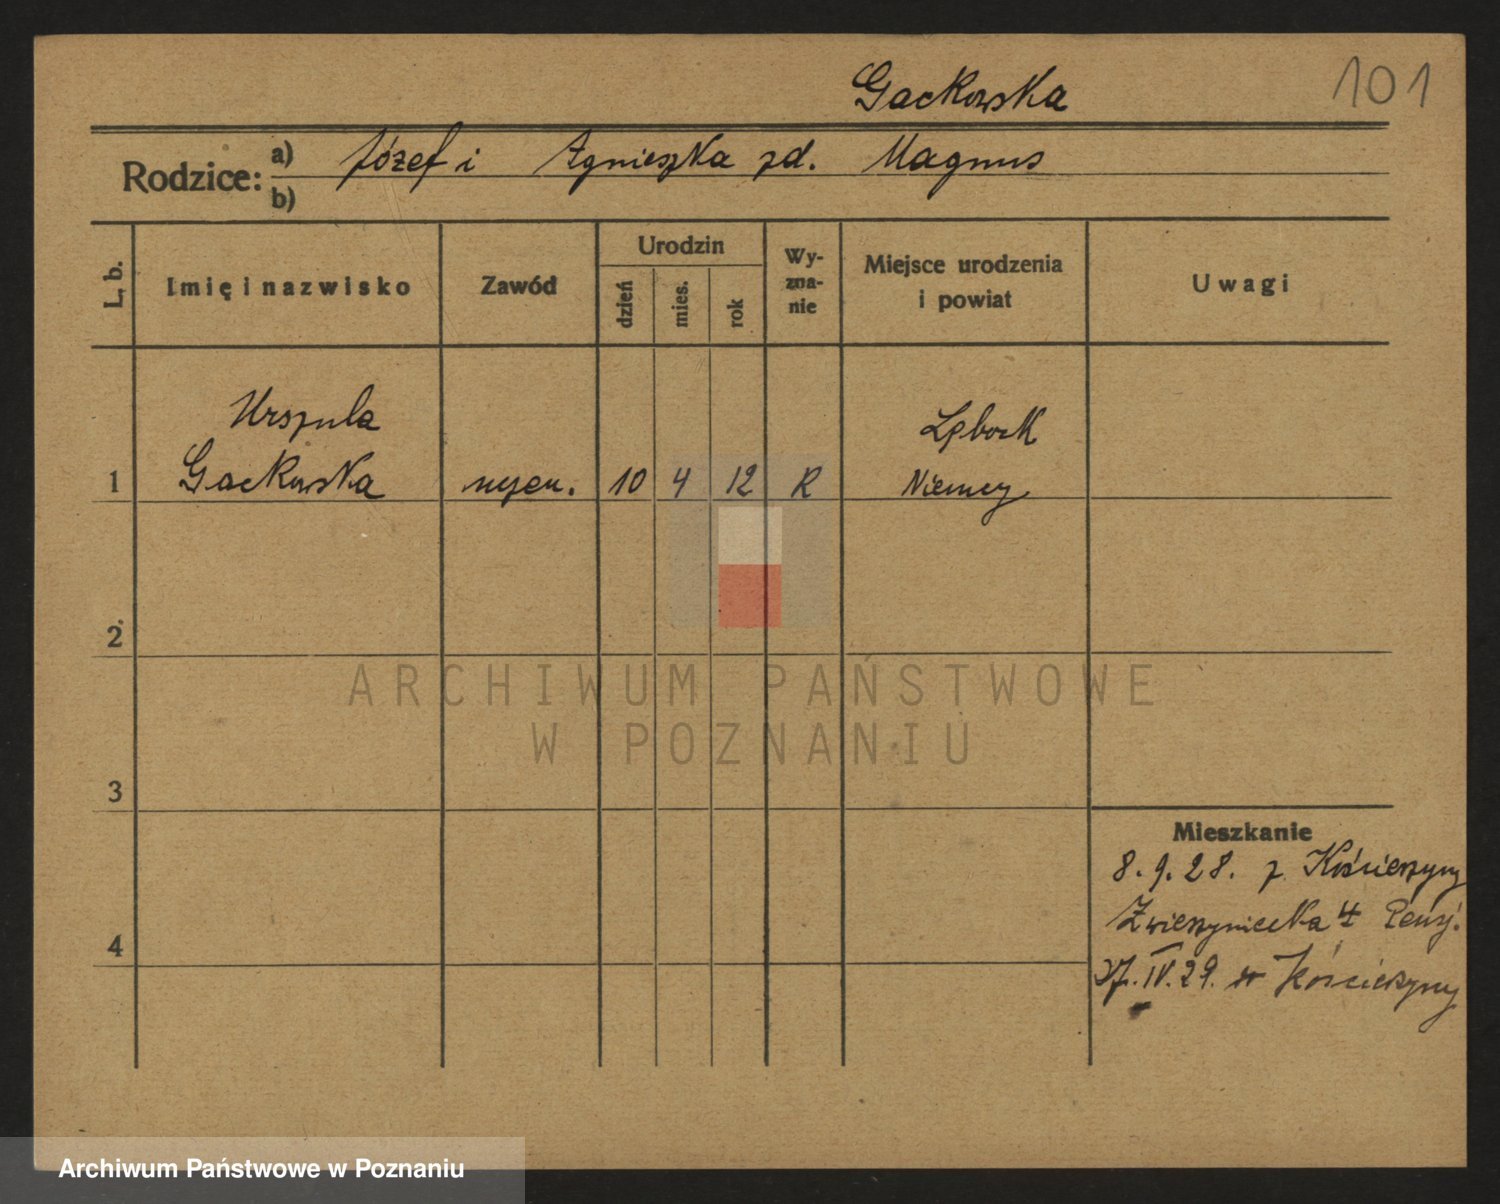 Gackowska
101
Rodzice: a) Józef i Agnieszka zd. Magnus
b)
L. b.
Imię i nazwisko
Zawód
Urodzin
dzień
mies.
rok
Wy-
zna-
nie
Miejsce urodzenia
i powiat
Uwagi
Urszula
Lębork
1 Gackowska uczen. 10 4 12 R Niemcy
2
ARCHIWUM PAŃSTWOWE
W POZNANIU
3
Mieszkanie
8.9.28. z Kościerzyny
Zwierzyniecka Pensj.
4
IV.29. Kościerzyny
Archiwum Państwowe w Poznaniu